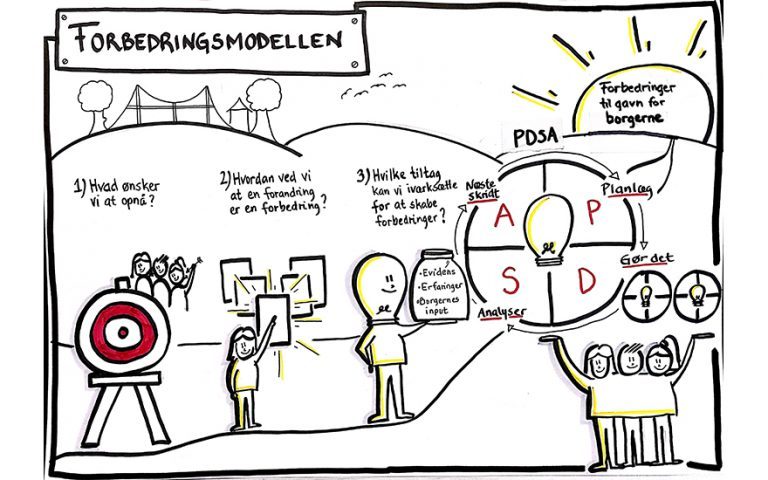 FORBEDRINGSMODELLEN
Forbedringer
til gavn for
borgerne
PDSA
1) Hvad ønsker
vi at opnå?
2) Hvordan ved vi
at en forandring
er en forbedring?
3) Hvilke tiltag
kan vi iværksætte
for at skabe
forbedringer?
Næste
skridt
Planlæg
A
P
Gør det
S
D
Analyser
• Evidens
• Erfaringer
• Borgernes
input